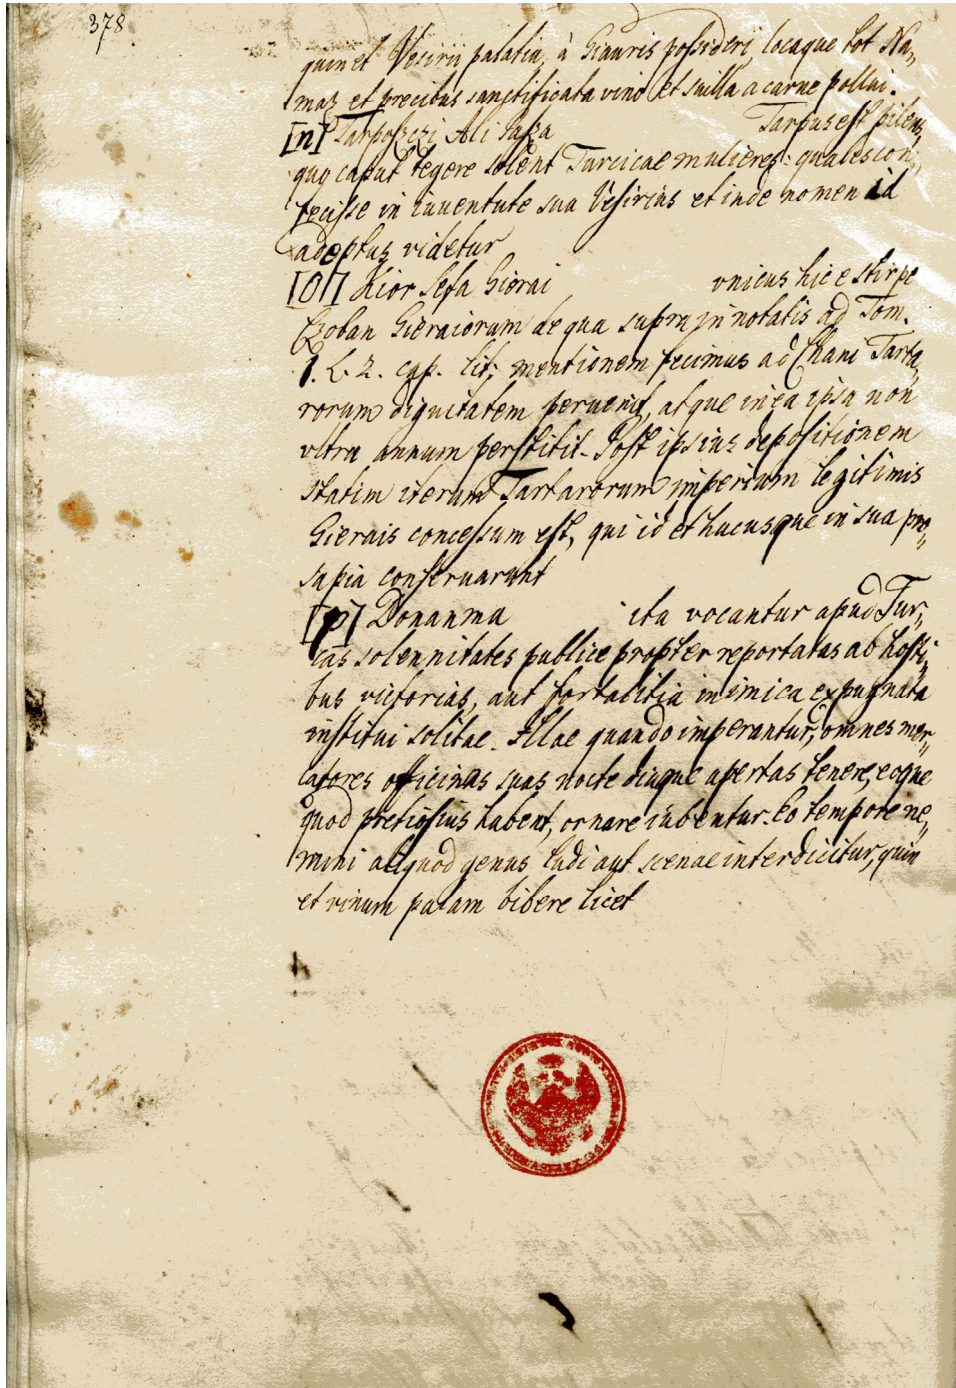 378
quin et Vesirii palatia, à Giauris possideri, locaque tot Na„
maz et precibus sanctificata vino et suilla a carne pollui.
[n] Tarposzczi Ali Pasza Tarpus est pileus
quo caput tegere solent Turcicae mulieres: quales con„
fecisse in iuuentute sua Vesirius et inde nomen id
adeptus videtur
[O] Kior Sefa Gierai vnicus hic e stirpe
Czoban Gieraiorum de qua supra in notatis ad Tom.
1. L. 2. cap. lit; mentionem fecimus ad Chani Tarta„
rorum dignitatem peruenit, atque in ea ipsa non
vltra annum perstitit. Post ipsius depositionem
statim iterum Tartarorum imperium legitimis
Gierais concessum est, qui id et hucusque in sua pro„
sapia conseruarunt
[p] Donanma ita vocantur apud Tur„
cas solennitates publice propter reportatas ab hosti„
bus victorias, aut fortalitia inimica expugnata
institui solitae. Illae quando imperantur, omnes mer„
catores officinas suas nocte diuque apertas tenere, eoque
quod pretiosius habent, ornare iubentur. Eo tempore ne„
mini aliquod genus ludi aut scenae interdicitur, quin
et vinum palam bibere licet